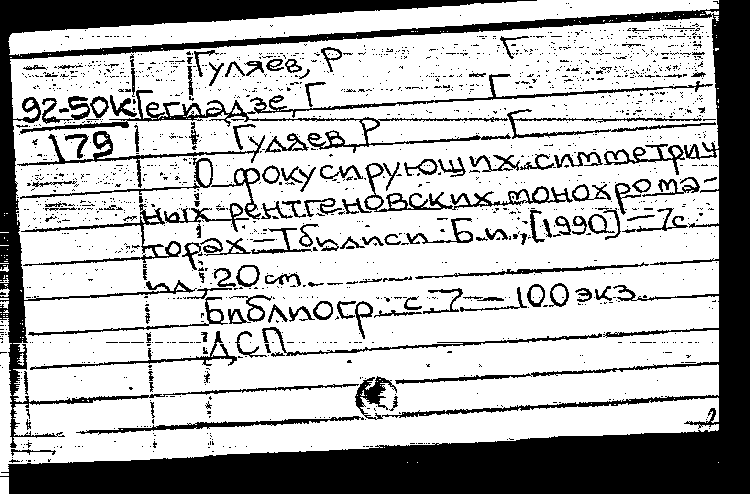 Гуляев, Р Г
92-50К Гегнадзе, Г Г
179 Гуляев, Р Г
О фокусирующих симметрич
ных рентгеновских монохрома-
торах – Тбилиси: Б.и., [1990] – 7с.
ил, 20 cm.
Библиогр.: с. 7 – 100 экз.
ДСП